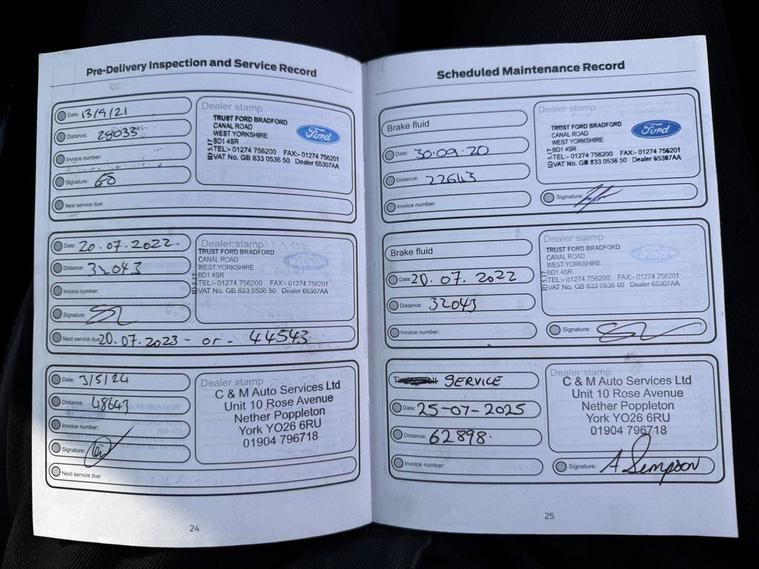 Pre-Delivery Inspection and Service Record
Date: 13/9/21
Distance: 28033
Invoice number:
Signature:
Next service due:
Dealer stamp
TRUST FORD BRADFORD
CANAL ROAD
WEST YORKSHIRE
BD1 4SR
TEL:- 01274 756200 FAX:- 01274 756201
VAT No. GB 833 0536 50 Dealer 65307AA
Ford
Date: 20.07.2022.
Distance: 32043
Invoice number:
Signature:
Next service due: 20.07.2023 - or - 44543
Dealer stamp
TRUST FORD BRADFORD
CANAL ROAD
WEST YORKSHIRE
BD1 4SR
TEL:- 01274 756200 FAX:- 01274 756201
VAT No. GB 833 0536 50 Dealer 65307AA
Ford
Date: 3/5/24
Distance: 48643
Invoice number:
Signature:
Next service due:
Dealer stamp
C & M Auto Services Ltd
Unit 10 Rose Avenue
Nether Poppleton
York YO26 6RU
01904 796718
24
Scheduled Maintenance Record
Brake fluid
Date: 30.09.20
Distance: 22643
Invoice number:
Dealer stamp
TRUST FORD BRADFORD
CANAL ROAD
WEST YORKSHIRE
BD1 4SR
TEL:- 01274 756200 FAX:- 01274 756201
VAT No. GB 833 0536 50 Dealer 65307AA
Ford
Signature:
Brake fluid
Date: 20.07.2022
Distance: 32043
Invoice number:
Dealer stamp
TRUST FORD BRADFORD
CANAL ROAD
WEST YORKSHIRE
BD1 4SR
TEL:- 01274 756200 FAX:- 01274 756201
VAT No. GB 833 0536 50 Dealer 65307AA
Ford
Signature:
SERVICE
Date: 25-07-2025
Distance: 62898.
Invoice number:
Dealer stamp
C & M Auto Services Ltd
Unit 10 Rose Avenue
Nether Poppleton
York YO26 6RU
01904 796718
Signature: A Simpson
25